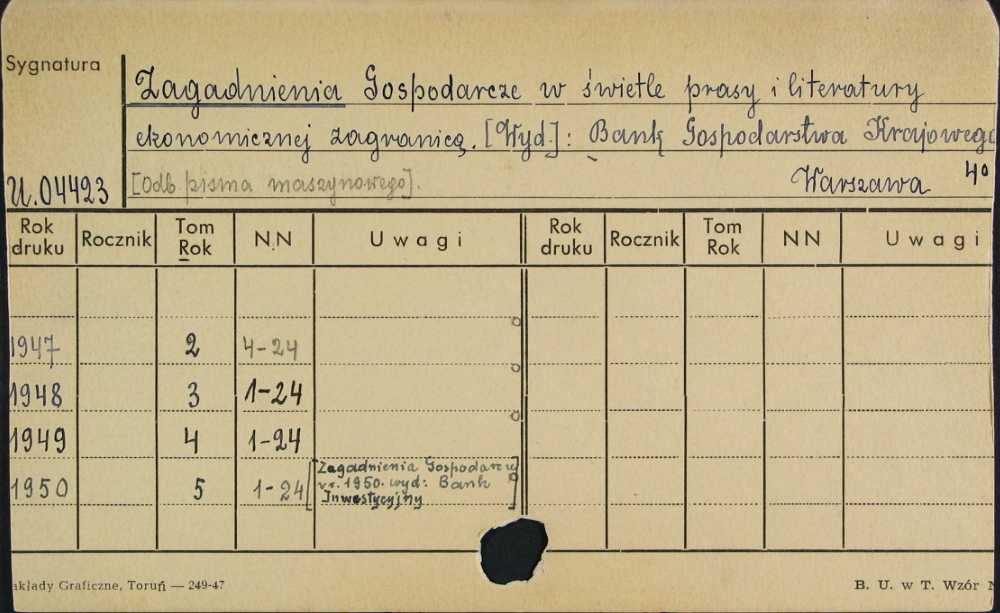 Sygnatura
Zagadnienia Gospodarcze w świetle prasy i literatury
ekonomicznej zagranicą. [Wyd.]: Bank Gospodarstwa Krajowego
U.04423 [Odb. pisma maszynowego]. Warszawa 4°
Rok druku Rocznik Tom Rok N.N Uwagi Rok druku Rocznik Tom Rok NN Uwagi
1947 2 4-24
1948 3 1-24
1949 4 1-24
1950 5 1-24 [Zagadnienia Gospodarcze
w r. 1950. wyd: Bank
Inwestycyjny]
akłady Graficzne, Toruń — 249-47 B. U. w T. Wzór N